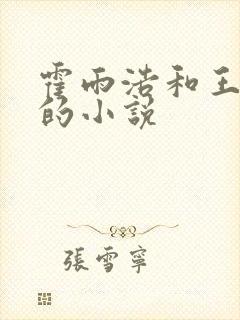 霍雨浩和王
的小說
張雪寧